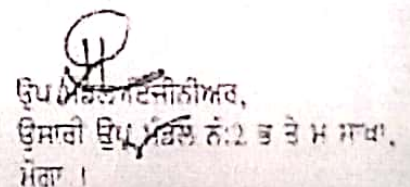 ਉਪ ਮੰਡਲ ਇੰਜੀਨੀਅਰ,
ਉਸਾਰੀ ਉਪ ਮੰਡਲ ਨੰ:2 ਭ ਤੇ ਮ ਸਾਖਾ,
ਮੋਗਾ ।